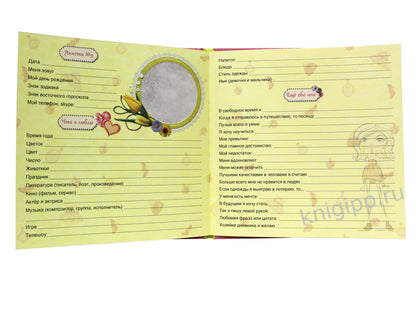 Анкета №5
Дата
Меня зовут
Мой день рождения
Знак зодиака
Знак восточного гороскопа
Мой телефон, skype:
Что я люблю
Время года
Цветок
Цвет
Число
Животное
Праздник
Литература (писатель, поэт, произведение)
Кино (фильм, сериал)
Актёр и актриса
Музыка (композитор, группа, исполнитель)
Игра
Телешоу
Напиток
Блюдо
Стиль одежды
Имя (девочки и мальчика)
Ещё обо мне
В свободное время я
Когда я отправлюсь в путешествие, то посещу
Лучше всего я умею
Я хочу научиться
Мои привычки:
Моё главное достоинство:
Мой недостаток:
Меня вдохновляет
Меня может огорчить
Лучшими качествами в человеке я считаю
Больше всего мне не нравится в людях
Если однажды я выиграю в лотерею, то
У меня есть мечта:
В будущем я хочу стать
Так я пишу левой рукой:
Любимая фраза или цитата:
Хозяйке дневника я желаю
knigipp.ru